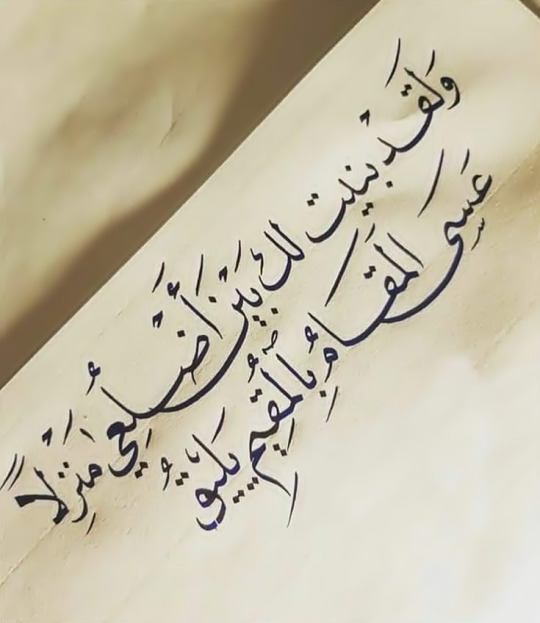 وَلَقَدْ بنيت لك بَيْنَ أَضْلُعِي مَنْزِلًا
عَسِى المَقَامُ بِالمُقِيمِ يَلِيقُ